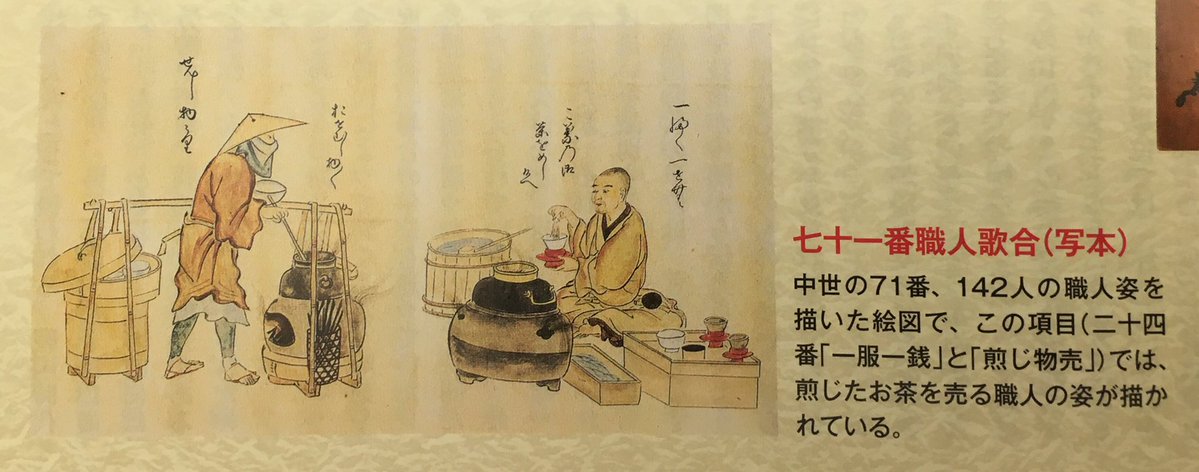 一ふく一せん
こ葉乃御
茶をめし
候へ
おせんし物〱
せんし物
七十一番職人歌合(写本)
中世の71番、142人の職人姿を
描いた絵図で、この項目(二十四
番「一服一銭」と「煎じ物売」)では、
煎じたお茶を売る職人の姿が描か
れている。